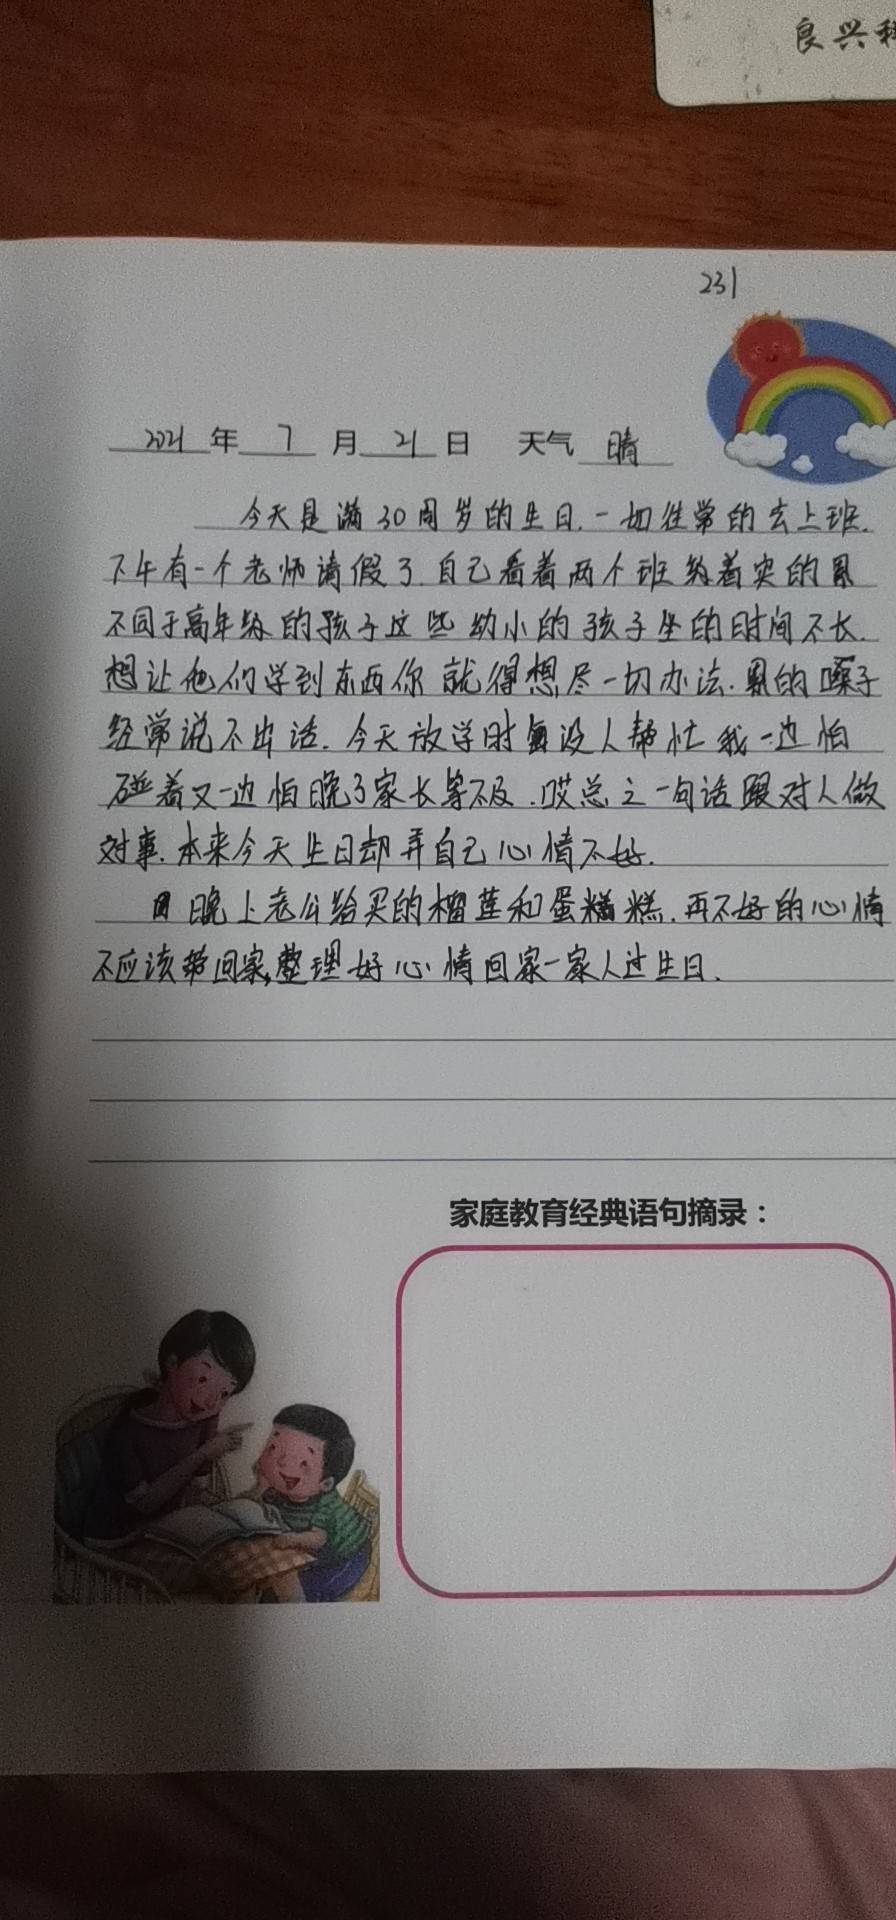 良兴科
231
2021年7月21日 天气 晴
今天是满30周岁的生日.一如往常的去上班.
下午有一个老师请假了.自己看着两个班务着实的累
不同于高年级的孩子这些幼小的孩子坐的时间不长.
想让他们学到东西你就得想尽一切办法.累的嗓子
经常说不出话.今天放学时没人帮忙我一边怕
碰着又一边怕晚了家长等不及.哎总之一句话跟对人做
对事.本来今天生日却弄自己心情不好.
晚上老公给买的榴莲和蛋糕.再不好的心情
不应该带回家,整理好心情回家一家人过生日.
家庭教育经典语句摘录：